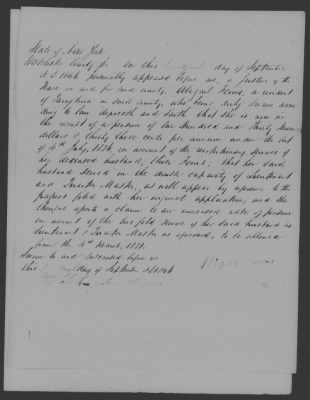 State of New York
County ss. On this day of September
A D 1846 personally appeared before me, a Justice of the
Peace in and for said County, Abigail a resident
of in said County, who being duly sworn accor-
ding to law deposeth and saith that she is now in
the receipt of a pension of Two Hundred and Thirty Seven
dollars & thirty three cents per annum under the Act
of 4th July, 1836, on account of the revolutionary services of
her deceased husband, Oliver that her said
husband served in the double capacity of Lieutenant
and Quarter Master, as will appear by reference to the
papers filed with her original application; and she
therefore asserts a claim to an increased rate of pension
on account of the two fold service of her said husband as
Lieutenant & Quarter Master as aforesaid, to be allowed
from the 4th March, 1831.
Sworn to and subscribed before me
this day of September A D 1846
Abigail